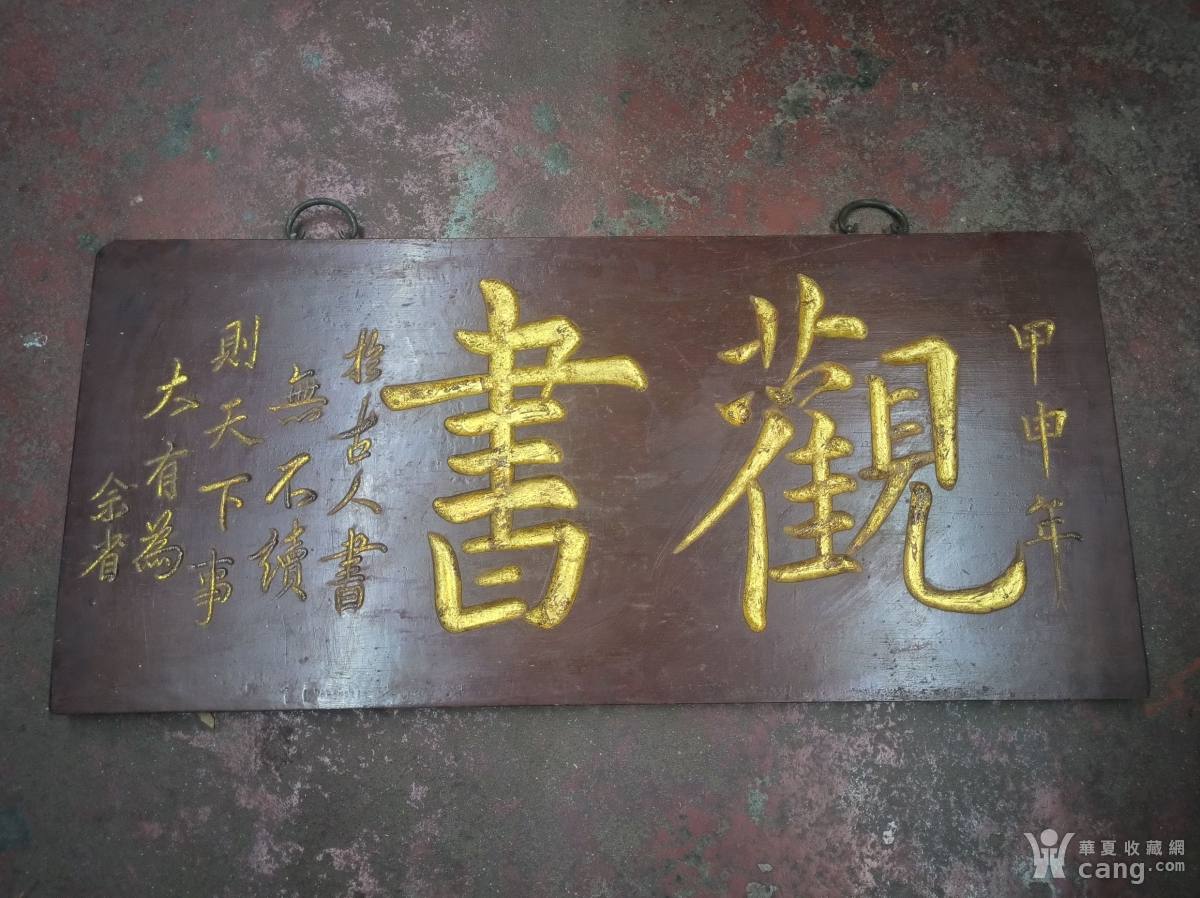 甲申年
觀書
於古人書
無不續
則天下事
大有為
余省
華夏收藏網
cang.com